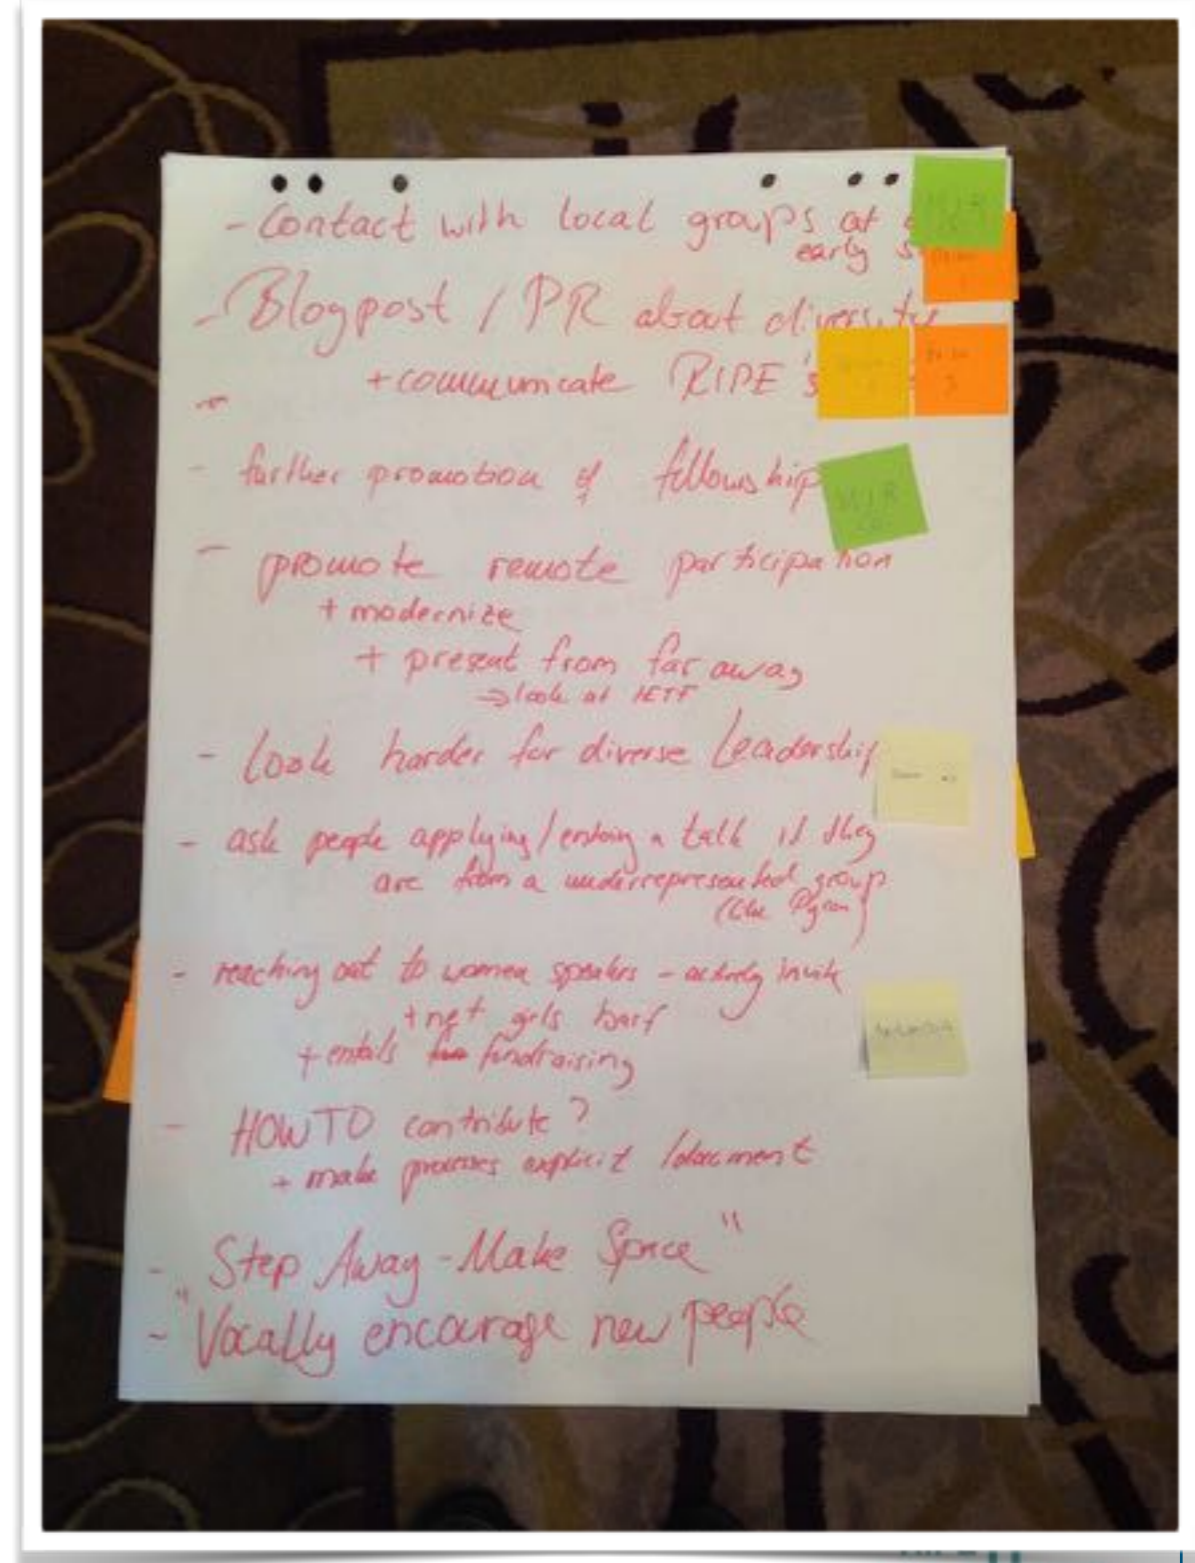 - Contact with local groups at
early s
- Blogpost / PR about diversity
+ communicate RIPE's
- further promotion of fellowship
MIR
- promote remote participation
+ modernize
+ present from far away
⇒ look at IETF
- Look harder for diverse Leadership
- ask people applying / a talk if they
are from a underrepresented group
(like Pycon)
- reaching out to women speakers - actively invite
+ net girls
+ entails fundraising
- HOWTO contribute?
+ make processes explicit / document
- "Step Away - Make Space"
- Vocally encourage new people